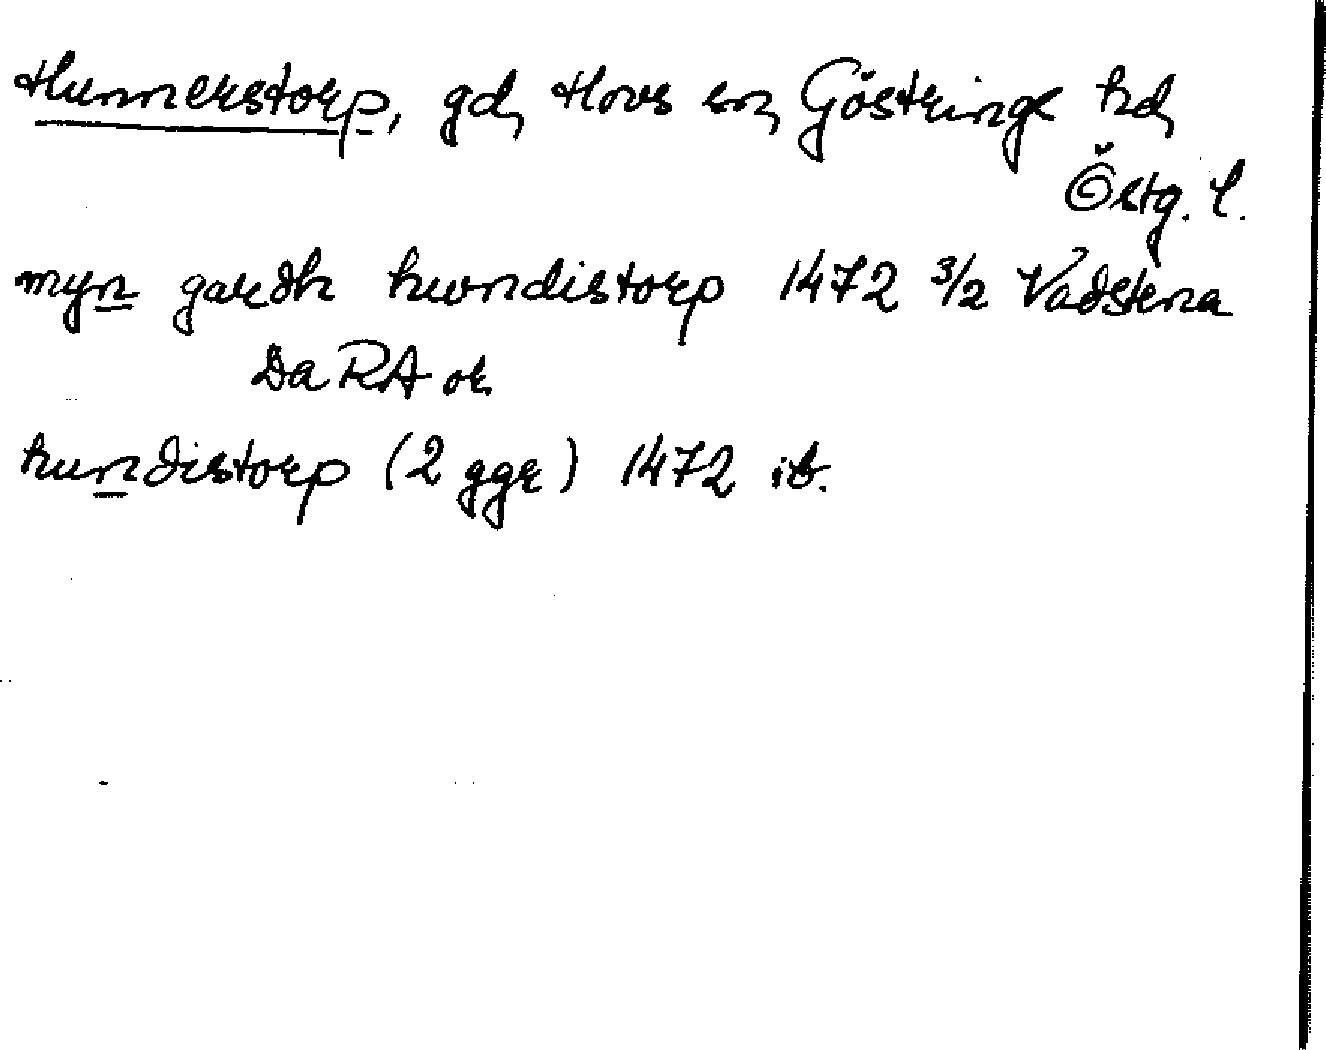 Hunnerstorp, gd, Hovs sn, Göstrings hd,
Östg. l.
myn gardh hwndistorp 1472 3/2 Vadstena
Da RA or.
hundistorp (2 ggr) 1472 ib.